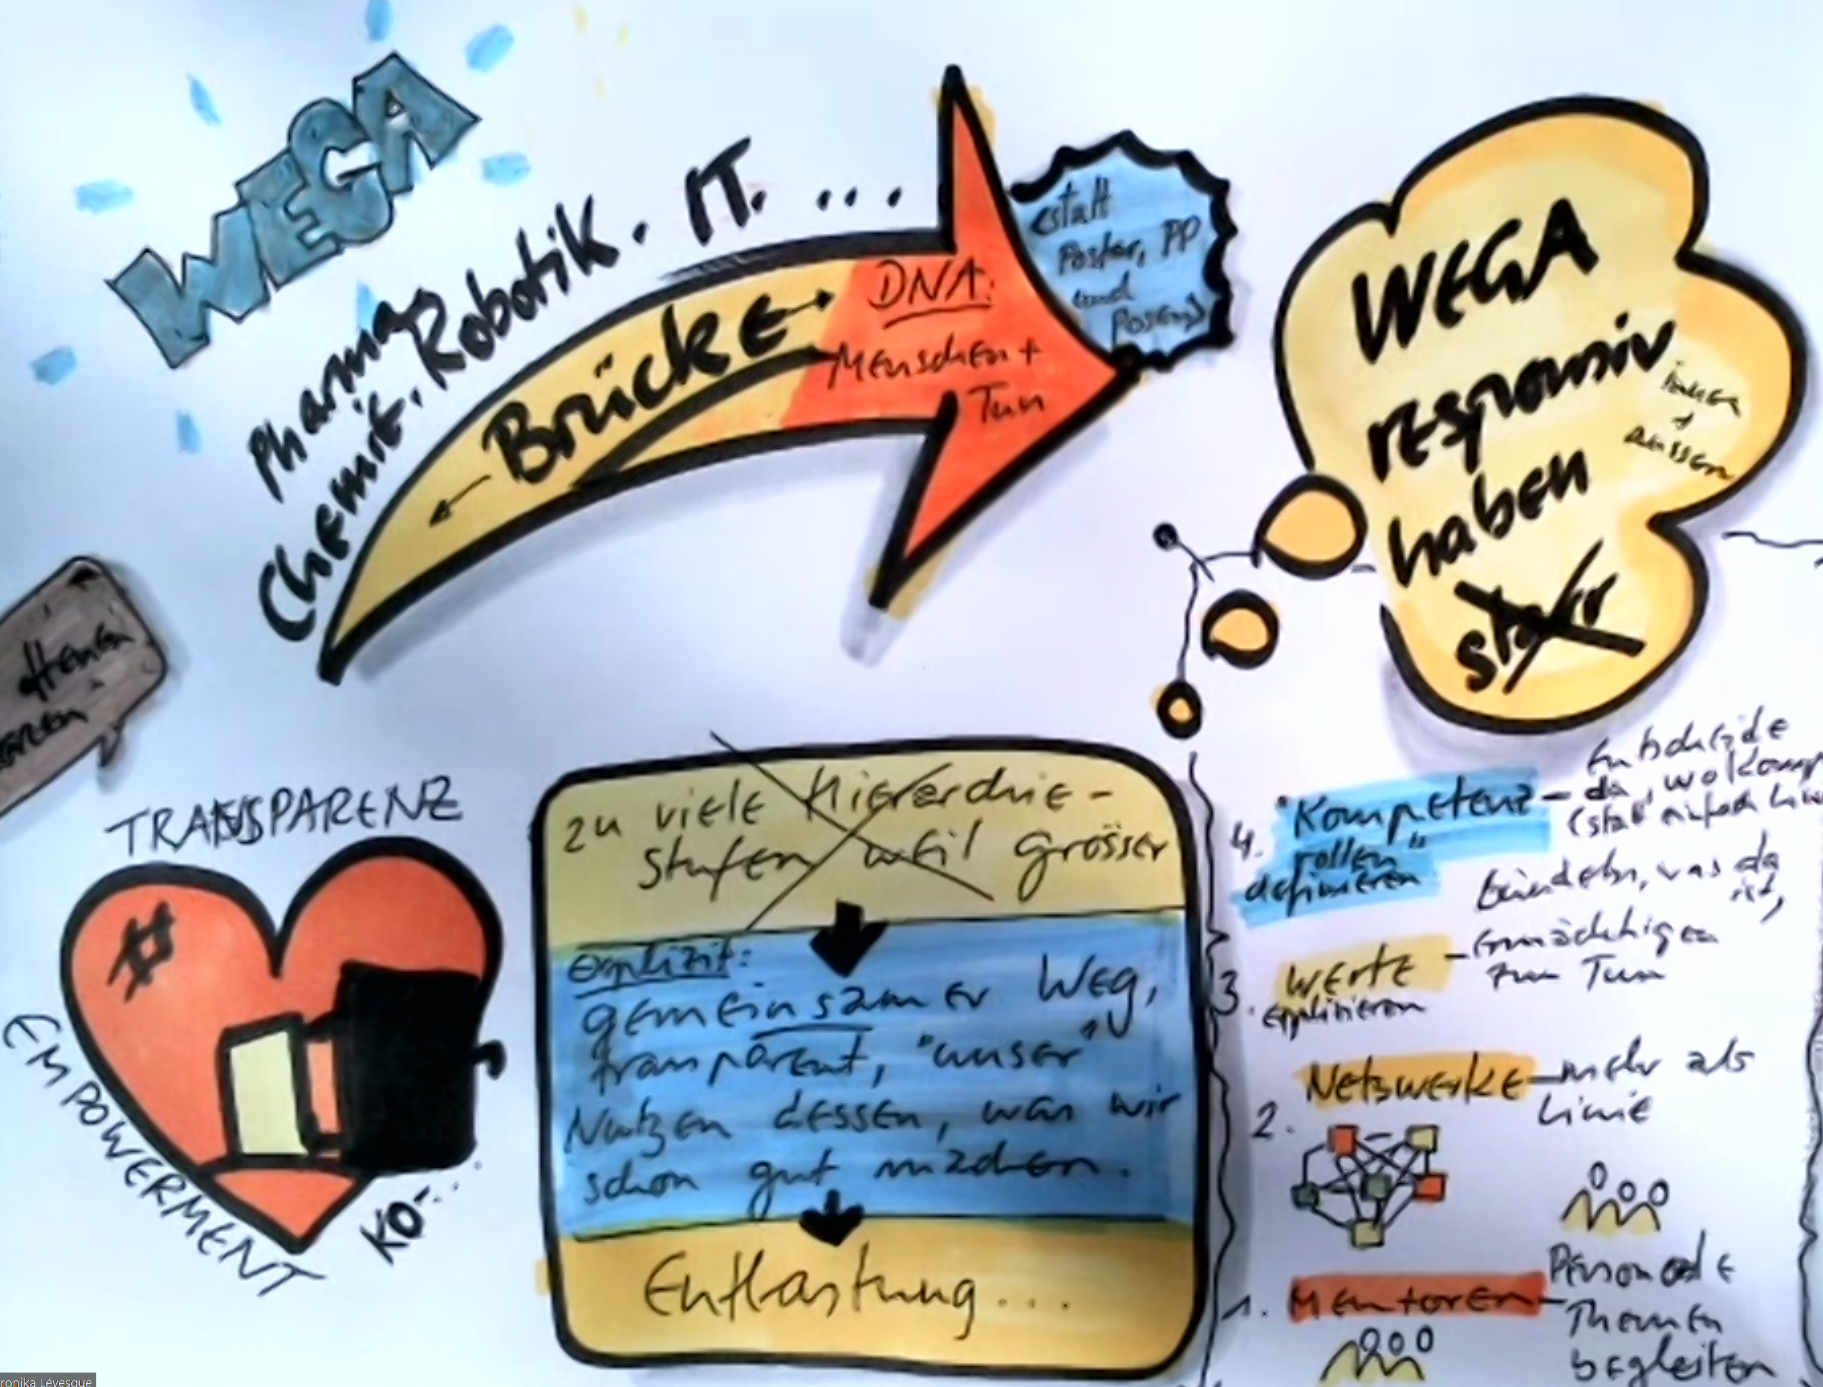 WEGA
Pharma,
Chemie, Robotik. IT. ...
Brücke
DNA:
Menschen +
Tun
statt
Poster, PP
und
WEGA
responsiv
haben
starr
innen
+
aussen
TRANSPARENZ
#
EMPOWERMENT
KO-...
zu viele Hierarchie-
stufen weil grösser
explizit:
gemeinsamer Weg,
transparent, "unser"
Nutzen dessen, was wir
schon gut machen.
Entlastung...
4. "Kompetenz-
rollen"
definieren
Entscheide
da, wo Komp
(statt einfach Lin
3. Werte
explizieren
bündeln, was da
ist,
Ermächtigen
zum Tun
2. Netzwerke - mehr als
Linie
1. Mentoren - Personen
Themen
begleiten
ronika Lévesque